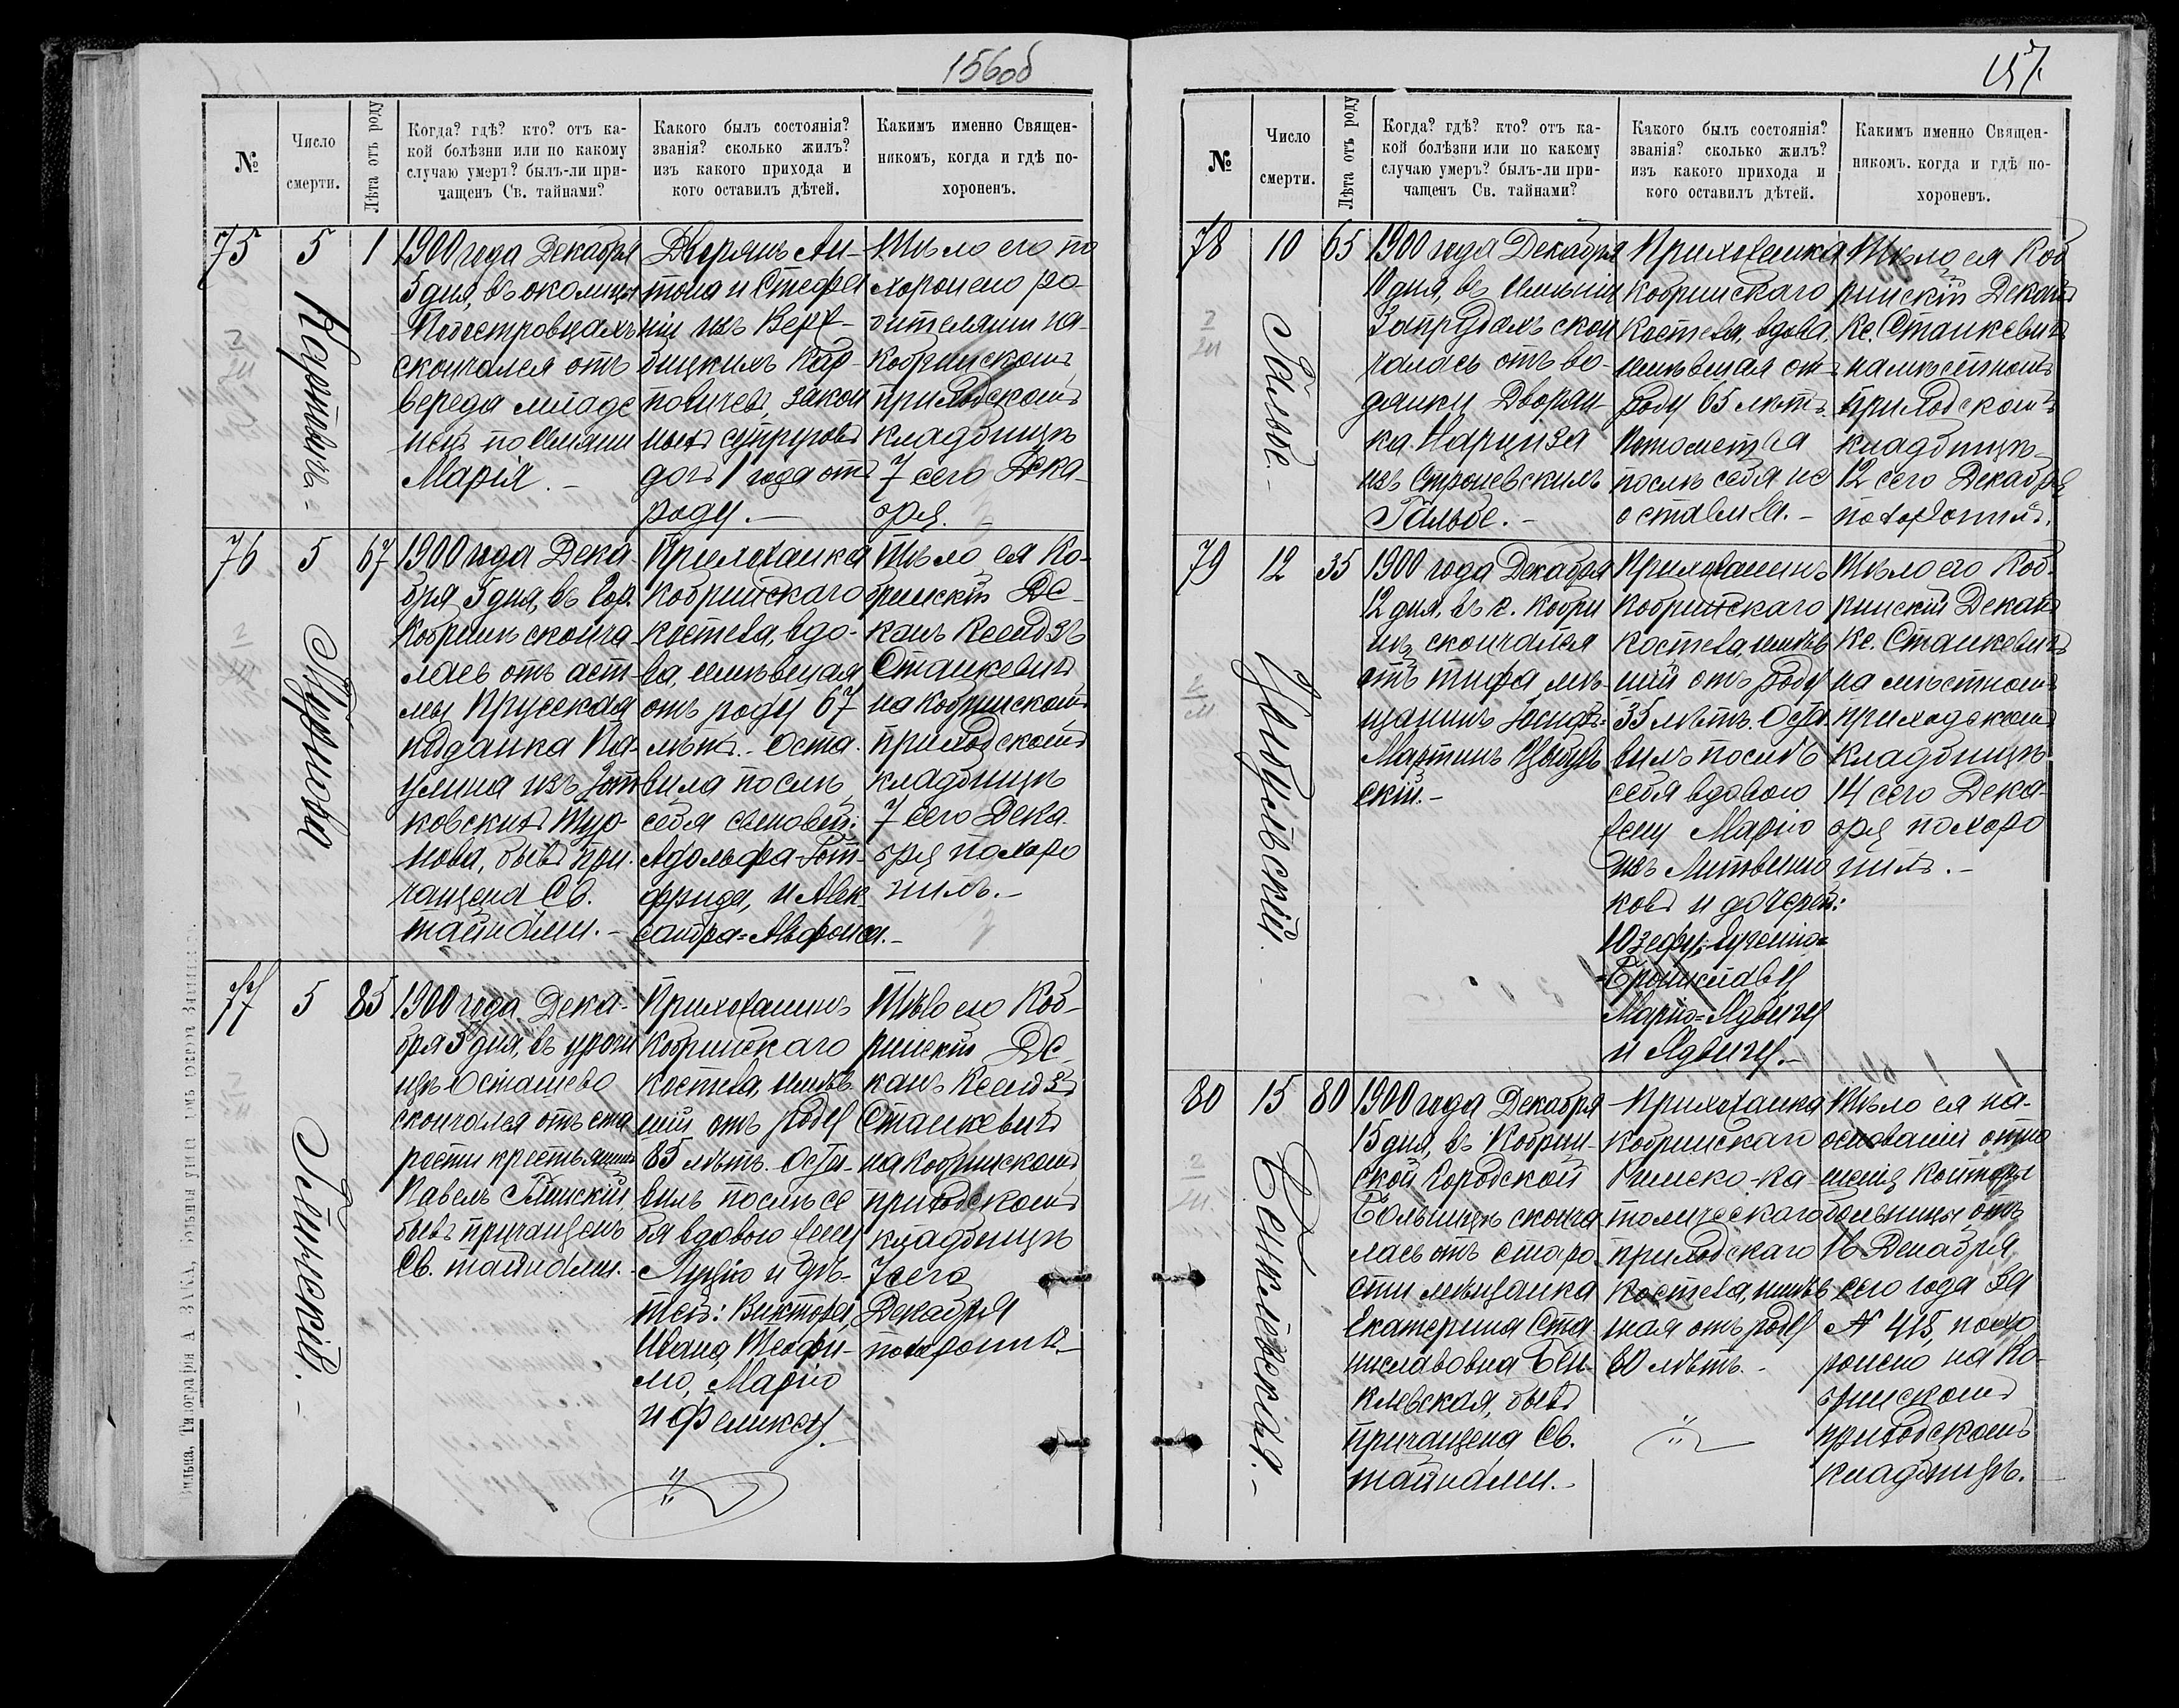 156об
№
Число
смерти.
Лѣта отъ роду
Когда? гдѣ? кто? отъ ка-
кой болѣзни или по какому
случаю умеръ? былъ-ли при-
чащенъ Св. тайнами?
Какого былъ состоянія?
званія? сколько жилъ?
изъ какого прихода и
кого оставилъ дѣтей.
Какимъ именно Священ-
никомъ, когда и гдѣ по-
хороненъ.
75
5
Карповичъ.-
1
1900 года Декабря
5 дня, въ околицѣ
скончался отъ
вереда младе
нецъ по имени
Марія.-
Дворянъ Ан-
тона и Стефа
ніи изъ Верж-
бицкихъ Кар-
повичей, закон
ныхъ супруговъ
дочь 1 года отъ
роду.-
Тѣло его по
хоронено ро-
дителями на
Кобринскомъ
приходскомъ
кладбищѣ
7 сего Дека-
бря.-
76
5
Турнова
67
1900 года Дека-
бря 5 дня, въ гор.
Кобринѣ сконча-
лась отъ аст-
мы Прусская
подданка Па-
улина изъ
ковскихъ Тур-
нова, бывъ при-
чащена Св.
тайнами.-
Прихожанка
Кобринскаго
костела, вдо-
ва, имѣвшая
отъ роду 67
лѣтъ.- Оста-
вила послѣ
себя сыновей:
Адольфа-Гот-
фрида, и Алек
сандра=Альфонса.-
Тѣло ея Ко-
бринскій Де-
канъ Ксендзъ
Станкевичъ
на Кобринскомъ
приходскомъ
кладбищѣ
7 сего Дека-
бря похоро
нилъ.-
77
5
Глинскій.-
85
1900 года Дека-
бря 5 дня, въ урочи
щѣ Осташево
скончался отъ ста
рости крестьянинъ
Павелъ Глинскій,
бывъ причащенъ
Св. тайнами.-
Прихожанинъ
Кобринскаго
костела, имѣв-
шій отъ роду
85 лѣтъ. Оста-
вилъ послѣ се
бя вдовою жену
Луцію и дѣ-
тей: Виктора,
Ивана, Теофи-
лю, Марію
и Феликсу.
Тѣло его Коб-
ринскій Де-
канъ Ксендзъ
Станкевичъ
на Кобринскомъ
приходскомъ
кладбищѣ
7 сего
Декабря
похоронилъ.-
157.
№
Число
смерти.
Лѣта отъ роду
Когда? гдѣ? кто? отъ ка-
кой болѣзни или по какому
случаю умеръ? былъ-ли при-
чащенъ Св. тайнами?
Какого былъ состоянія?
званія? сколько жилъ?
изъ какого прихода и
кого оставилъ дѣтей.
Какимъ именно Священ-
никомъ. когда и гдѣ по-
хороненъ.
78
10
Гальве.-
65
1900 года Декабря
10 дня, въ имѣніи
Запрудахъ скон
чалась отъ во-
дянки Дворян-
ка Нарциза
изъ Строневскихъ
Гальве.-
Прихожанка
Кобринскаго
костела, вдова,
имѣвшая отъ
роду 65 лѣтъ.
Потомства
послѣ себя не
оставила.-
Тѣло ея Коб
ринскій Деканъ
Кс. Станкевичъ
на мѣстномъ
приходскомъ
кладбищѣ
12 сего Декабря
похоронилъ.
79
12
Цыбульскій.
35
1900 года Декабря
12 дня, въ г. Кобри
нѣ, скончался
отъ тифа мѣ-
щанинъ Іосифъ=
Мартинъ Цыбуль
скій.-
Прихожанинъ
Кобринскаго
костела, имѣв
шій отъ роду
35 лѣтъ. Оста-
вилъ послѣ
себя вдовою
жену Марію
изъ Литвино
ковъ и дочерей:
Юзефу, Евгенію=
=Брониславу
Марію=Ядвигу
и Ядвигу.-
Тѣло его Коб-
ринскій Деканъ
Кс. Станкевичъ
на мѣстномъ
приходскомъ
кладбищѣ
14 сего Дека-
бря похоро
нилъ.-
80
15
Беклевская.-
80
1900 года Декабря
15 дня, въ Кобрин-
ской Городской
Больницѣ сконча
лась отъ старо-
сти мѣщанка
Екатерина Ста
ниславовна Бен-
клевская, бывъ
причащена Св.
тайнами.-
Прихожанка
Кобринскаго
Римско-ка-
толическаго
приходскаго
костела, имѣв
шая отъ роду
80 лѣтъ.-
Тѣло ея на
основаніи отно
шенія Конторы
больницы отъ
16 Декабря
сего года за
№ 418, похо
ронено на Ко-
бринскомъ
приходскомъ
кладбищѣ.